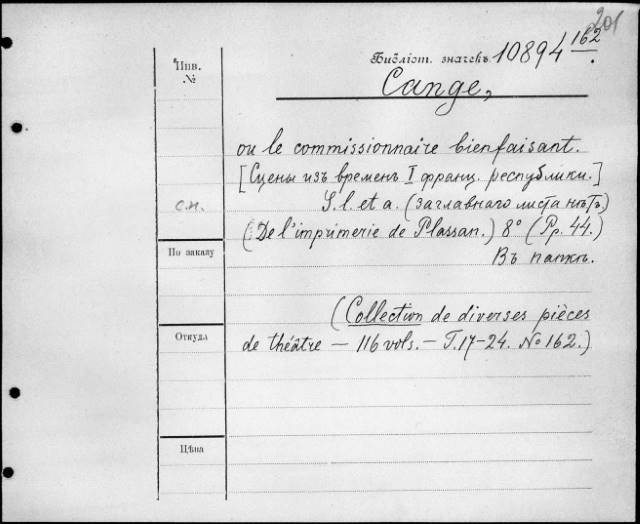 201
Инв. №
Библіот. значекъ 10894 162.
Cange,
ou le commissionnaire bienfaisant.
[Сцены изъ временъ I франц. республики.]
с.н.
S. l. et a. (заглавнаго листа нѣтъ)
(De l'imprimerie de Plassan.) 8° (Pp. 44.)
По заказу
Въ папкѣ.
(Collection de diverses pièces
Откуда
de théâtre — 116 vols. — T. 17-24. № 162.)
Цѣна